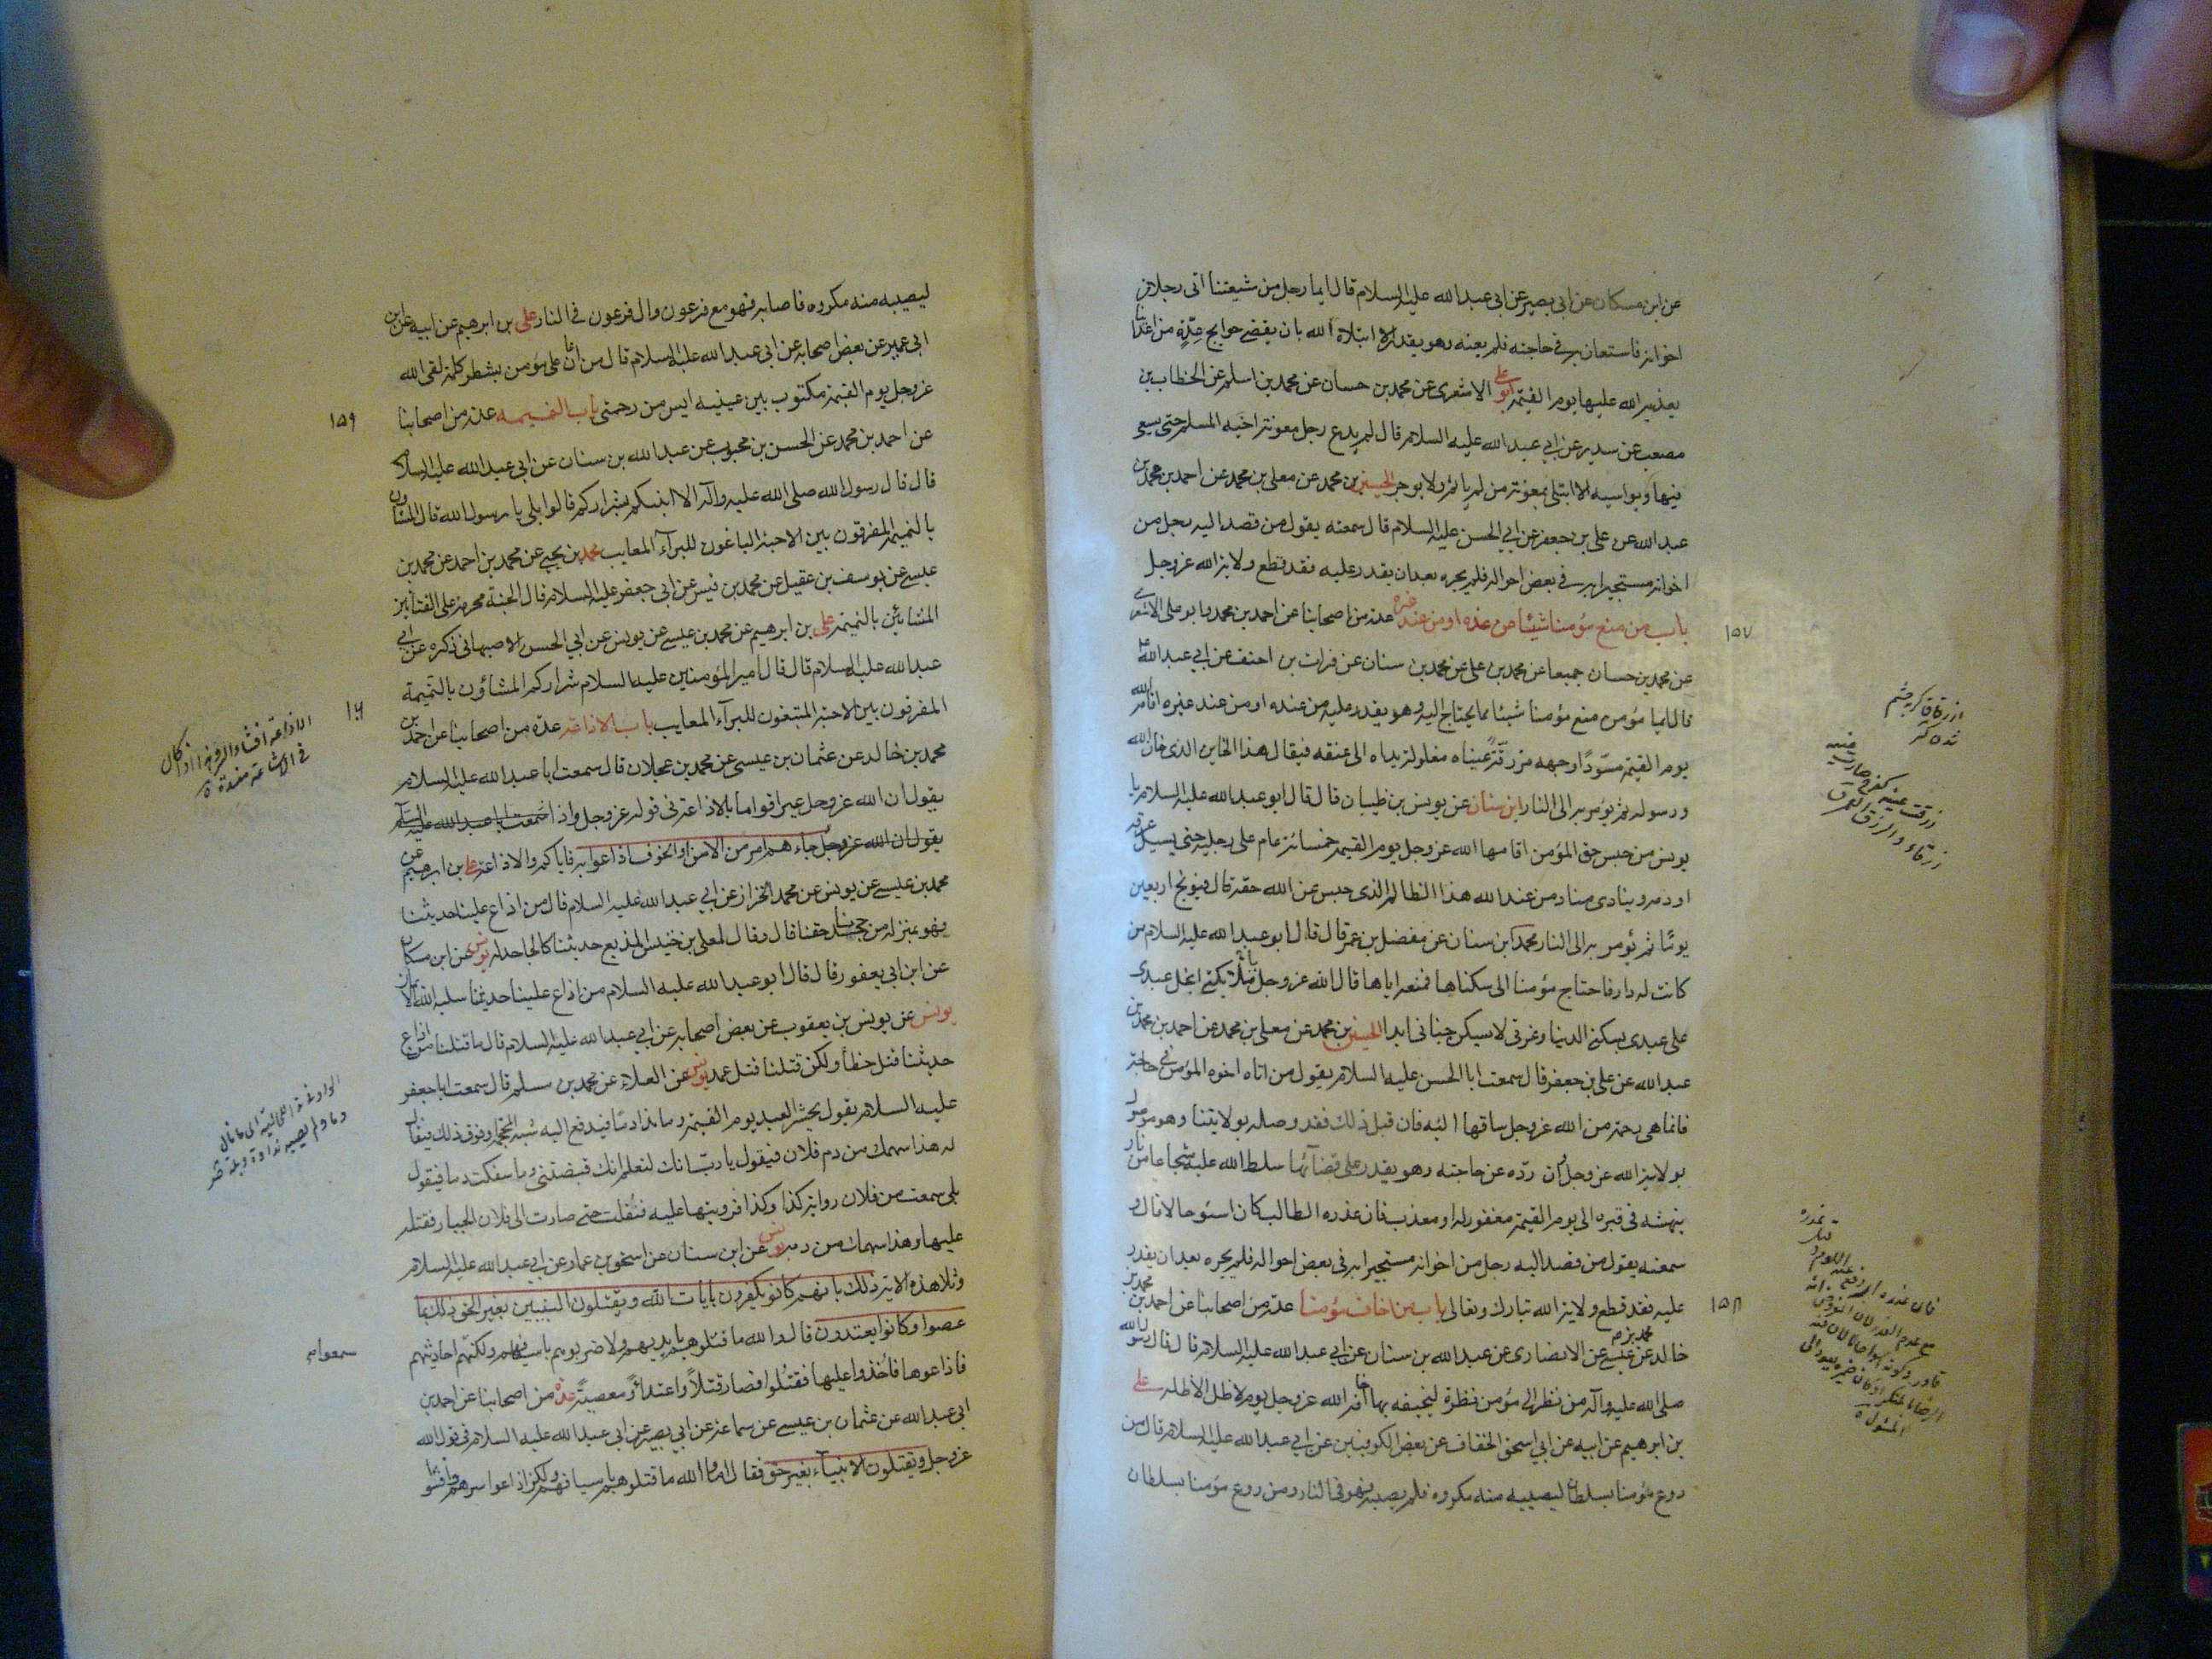 عن ابن مسكان عن ابى بصير عن ابى عبد الله عليه السلام قال ايما رجل من شيعتنا اتى رجلا من
اخوانه فاستعان به فى حاجته فلم يعنه وهو يقدر الا ابتلاه الله بان يقضى حوايج عدة من اعدائنا
يعذبه الله عليها يوم القيمة ابو على الاشعرى عن محمد بن حسان عن محمد بن اسلم عن الخطاب بن
مصعب عن سدير عن ابي عبد الله عليه السلام قال لم يدع رجل معونة اخيه المسلم حتى يسعى
فيها ويواسيه الا ابتلى بمعونة من لم ياثم ولا يوجر الحسين بن محمد عن معلى بن محمد عن احمد بن محمد بن
عبد الله عن على بن جعفر عن ابي الحسن عليه السلام قال سمعته يقول من قصد اليه رجل من
اخوانه مستجيرا به فى بعض احواله فلم يجره بعد ان يقدر عليه فقد قطع ولاية الله عز وجل
١٥٧
باب من منع مؤمنا شيئا من عنده او من عند غيره عدة من اصحابنا عن احمد بن محمد وابو على الاشعرى
عن محمد بن حسان جميعا عن محمد بن على عن محمد بن سنان عن فرات بن احنف عن ابي عبد الله ع
قال ايما مؤمن منع مؤمنا شيئا مما يحتاج اليه وهو يقدر عليه من عنده او من عند غيره اقامه الله
يوم القيمة مسودا وجهه مزرقة عيناه مغلولة يداه الى عنقه فيقال هذا الخاين الذى خان الله
ورسوله ثم يؤمر به الى النار ابن سنان عن يونس بن ظبيان قال قال ابو عبد الله عليه السلام يا
يونس من حبس حق المؤمن اقامه الله عز وجل يوم القيمة خمسائة عام على رجليه حتى يسيل عرقه
او دمه وينادى مناد من عند الله هذا الظالم الذى حبس عن الله حقه قال فيوبخ اربعين
يوما ثم يؤمر به الى النار محمد بن سنان عن مفضل بن عمر قال قال ابو عبد الله عليه السلام من
كانت له دار فاحتاج مؤمنا الى سكناها فمنعه اياها قال الله عز وجل يا ملائكتى ابخل عبدى
على عبدى بسكنى الدنيا وعزتى لا يسكن جنانى ابدا الحسين بن محمد عن معلى بن محمد عن احمد بن محمد بن
عبد الله عن على بن جعفر قال سمعت ابا الحسن عليه السلام يقول من اتاه اخوه المؤمن فى حاجة
فانما هى رحمة من الله عز وجل ساقها اليه فان قبل ذلك فقد وصله بولايتنا وهو موصول
بولاية الله عز وجل وان رده عن حاجته وهو يقدر على قضائها سلط الله عليه شجاعا من نار
ينهشه فى قبره الى يوم القيمة مغفور له او معذب فان عذره الطالب كان اسوء حالا قال و
سمعته يقول من قصد اليه رجل من اخوانه مستجيرا به فى بعض احواله فلم يجره بعد ان يقدر
١٥٨
عليه فقد قطع ولاية الله تبارك وتعالى باب من اخاف مؤمنا عدة من اصحابنا عن احمد بن محمد بن
خالد عن محمد بن عيسى عن الانصارى عن عبد الله بن سنان عن ابي عبد الله عليه السلام قال قال رسول الله
صلى الله عليه وآله من نظر الى مؤمن نظرة ليخيفه بها اخافه الله عز وجل يوم لا ظل الا ظله على
بن ابرهيم عن ابيه عن ابي اسحق الخفاف عن بعض الكوفيين عن ابي عبد الله عليه السلام قال من
روع مؤمنا بسلطان ليصيبه منه مكروه فلم يصبه فهو فى النار ومن روع مؤمنا بسلطان
ليصيبه منه مكروه فاصابه فهو مع فرعون وال فرعون فى النار على بن ابرهيم عن ابيه عن ابن
ابى عمير عن بعض اصحابه عن ابى عبد الله عليه السلام قال من اعان على مؤمن بشطر كلمة لقى الله
١٥٩
عز وجل يوم القيمة مكتوب بين عينيه ايس من رحمتى باب النميمه عدة من اصحابنا
عن احمد بن محمد عن الحسن بن محبوب عن عبد الله بن سنان عن ابى عبد الله عليه السلام
قال قال رسول الله صلى الله عليه وآله الا انبئكم بشراركم قالوا بلى يا رسول الله قال المشاؤن
بالنميمة المفرقون بين الاحبة الباغون للبرآء المعايب محمد بن يحيى عن محمد بن احمد عن محمد بن
عيسى عن يوسف بن عقيل عن محمد بن قيس عن ابى جعفر عليه السلام قال الجنة محرمة على القتاتين
المشائين بالنميمة على بن ابرهيم عن محمد بن عيسى عن يونس عن ابي الحسن الاصبهانى ذكره عن ابى
عبد الله عليه السلام قال قال امير المؤمنين عليه السلام شراركم المشاؤن بالنميمة
١٦٠
المفرقون بين الاحبة المبتغون للبرآء المعايب باب الاذاعه عدة من اصحابنا عن احمد بن
محمد بن خالد عن عثمان بن عيسى عن محمد بن عجلان قال سمعت ابا عبد الله عليه السلام
يقول ان الله عز وجل عير اقواما بالاذاعة فى قوله عز وجل واذا سمعت ابا عبد الله عليه السلام
يقول ان الله عز وجل جاءهم امر من الامن او الخوف اذاعوا به فاياكم والاذاعة على بن ابرهيم عن
محمد بن عيسى عن يونس عن محمد الخزاز عن ابي عبد الله عليه السلام قال من اذاع علينا حديثنا
فهو بمنزلة من جحدنا حقنا قال وقال لمعلى بن خنيس المذيع حديثنا كالجاحد له يونس عن ابن مسكان
عن ابن ابى يعفور قال قال ابو عبد الله عليه السلام من اذاع علينا حديثنا سلبه الله الايمان
يونس عن يونس بن يعقوب عن بعض اصحابه عن ابي عبد الله عليه السلام قال ما قتلنا من اذاع
حديثنا قتل خطأ ولكن قتلنا قتل عمد يونس عن العلاء عن محمد بن مسلم قال سمعت ابا جعفر
عليه السلام يقول يحشر العبد يوم القيمة وما ندا دما فيدفع اليه شبه المحجمة او فوق ذلك فيقال
له هذا سهمك من دم فلان فيقول يا رب انك لتعلم انك قبضتنى وما سفكت دما فيقول
بلى سمعت من فلان رواية كذا وكذا فرويتها عليه فنقلت حتى صارت الى فلان الجبار فقتله
عليها وهذا سهمك من دمه يونس عن ابن سنان عن اسحق بن عمار عن ابي عبد الله عليه السلام
وتلا هذه الاية ذلك بانهم كانوا يكفرون بايات الله ويقتلون النبيين بغير الحق ذلك بما
عصوا وكانوا يعتدون قال والله ما قتلوهم بايديهم ولا ضربوهم باسيافهم ولكنهم احاديثهم
سمعوا م
فاذاعوها فأخذوا عليها فقتلوا فصار قتلا واعتداء ومعصية عدة من اصحابنا عن احمد بن
ابى عبد الله عن عثمان بن عيسى عن سماعة عن ابي بصير عن ابى عبد الله عليه السلام فى قول الله
عز وجل ويقتلون الانبيآء بغير حق فقال اما والله ما قتلوهم باسيافهم ولكن اذاعوا سرهم وافشوا